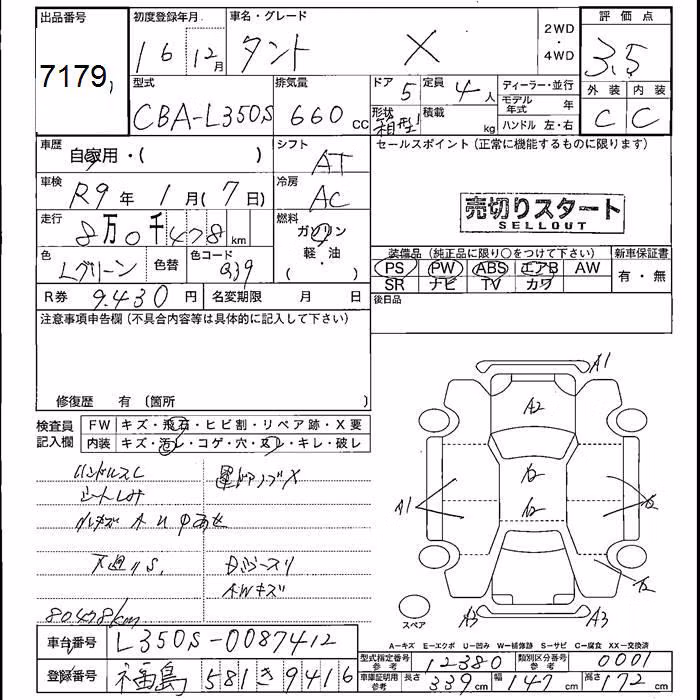 出品番号 初度登録年月 車名・グレード 2WD・4WD 評価点
7179, 16 12月 タント X 3.5
型式 排気量 ドア 定員 ディーラー・並行 外装 内装
CBA-L350S 660cc 5 4人 モデル年式 年 C C
形状 箱型 積載 kg ハンドル 左・右
車歴 自家用・( ) シフト AT セールスポイント (正常に機能するものに限ります)
車検 R9年 1月(7日) 冷房 AC
売切りスタート
SELLOUT
走行 8万0千478km 燃料 ガソリン・軽・油・( )
色 Lグリーン 色替 色コード G39
装備品 (純正品に限り○をつけて下さい) 新車保証書
PS PW ABS エアB AW 有・無
SR ナビ TV カワ
R券 9,430円 名変期限 月 日 後日品
注意事項申告欄 (不具合内容等は具体的に記入して下さい)
修復歴 有 (箇所
検査員記入欄 FW キズ・飛石・ヒビ割・リペア跡・X要
内装 キズ・汚レ・コゲ・穴・スレ・キレ・破レ
ハンドルスレ
シートしみ
下廻りS
80,478km
A1
A2
A1
A3 A3
スペア
A=キズ E=エクボ U=凹み W=補修跡 S=サビ C=腐食 XX=交換済
車台番号 L350S-0087412
型式指定番号 参考 12380 類別区分番号 参考 0001
登録番号 福島 581 き 9416
車庫証明用 参考 長さ 339cm 幅 147cm 高さ 172cm